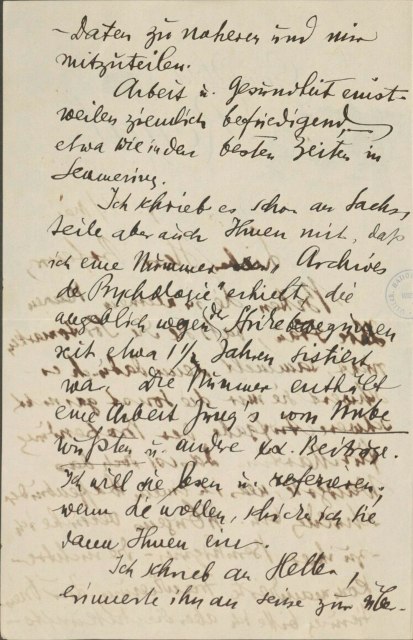 - Daten zu nähern und mir
mitzuteilen.
Arbeit u. Gesundheit einst-
weilen ziemlich befriedigend,
etwa wie in den besten Zeiten in
Semmering.
Ich schrieb es schon an Sachs,
teile aber auch Ihnen mit, daß
ich eine Nummer der „Archives
de Psychologie" erhielt, die
angeblich wegen der Strikebewegungen
seit etwa 1½ Jahren sistiert
war. Die Nummer enthält
eine Arbeit Jung's vom Unbe
wußten u. andre Beiträge.
Ich will sie lesen u. referieren,
wenn Sie wollen, schicke ich sie
dann Ihnen ein.
Ich schrieb an Heller,
erinnerte ihn an seine zur Übe-